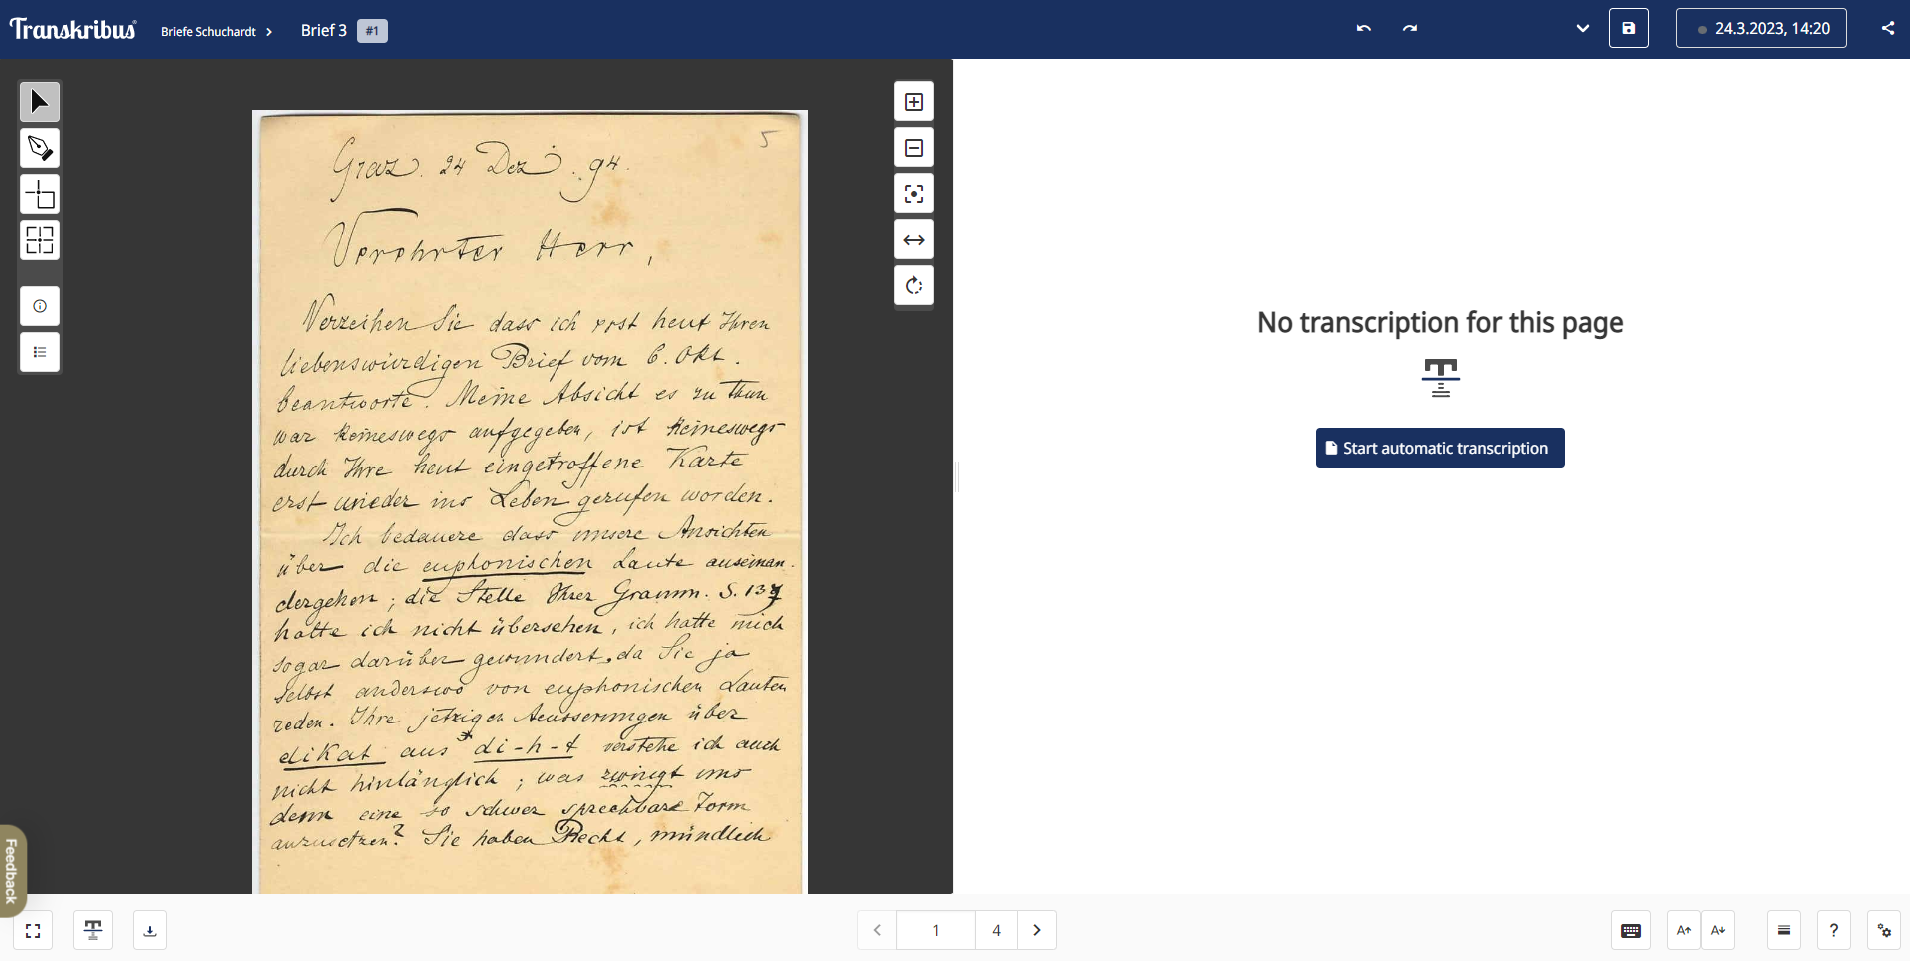 Transkribus®
Briefe Schuchardt
Brief 3
#1
24.3.2023, 14:20
5
Graz. 24 Dez. 94.
Verehrter Herr,
Verzeihen Sie dass ich erst heut Ihren
liebenswürdigen Brief vom 6. Okt.
beantworte. Meine Absicht es zu thun
war keineswegs aufgegeben, ist keineswegs
durch Ihre heut eingetroffene Karte
erst wieder ins Leben gerufen worden.
Ich bedauere dass unsere Ansichten
über die euphonischen Laute auseinan-
dergehen; die Stelle Ihrer Gramm. S. 137
hatte ich nicht übersehen, ich hatte mich
sogar darüber gewundert, da Sie ja
selbst anderswo von euphonischen Lauten
reden. Ihre jetzigen Aeusserungen über
dikat aus *di-h-t verstehe ich auch
nicht hinlänglich; was zwingt uns
denn eine so schwer sprechbare Form
anzusetzen? Sie haben Recht, mündlich
No transcription for this page
Start automatic transcription
Feedback
1
4
A
A
?